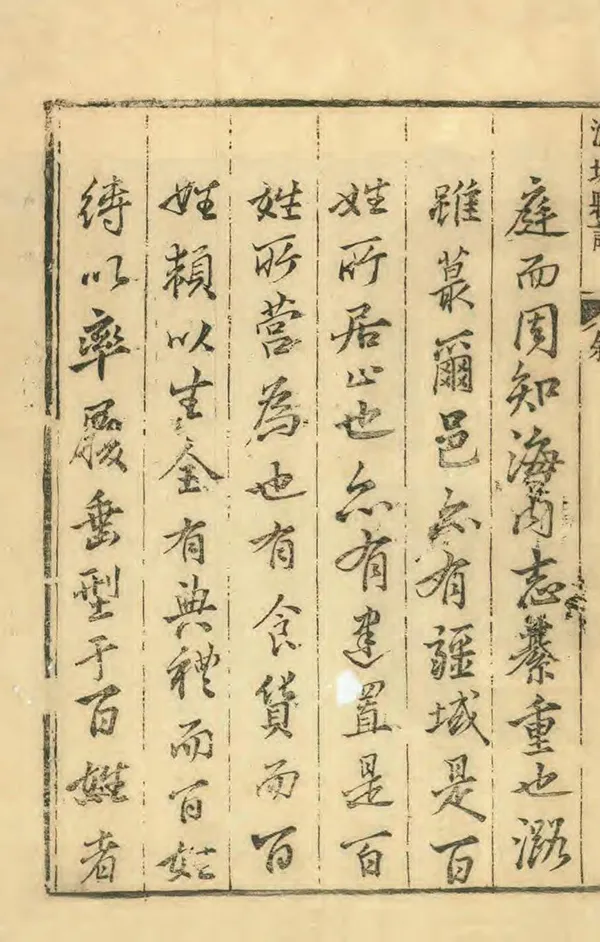 庭而周知海內志綦重也潞
雖蕞爾邑亦有疆域是百
姓所居止也亦有建置是百
姓所營為也有食貨而百
姓賴以生全有典禮而百姓
得以率履垂型于百姓者